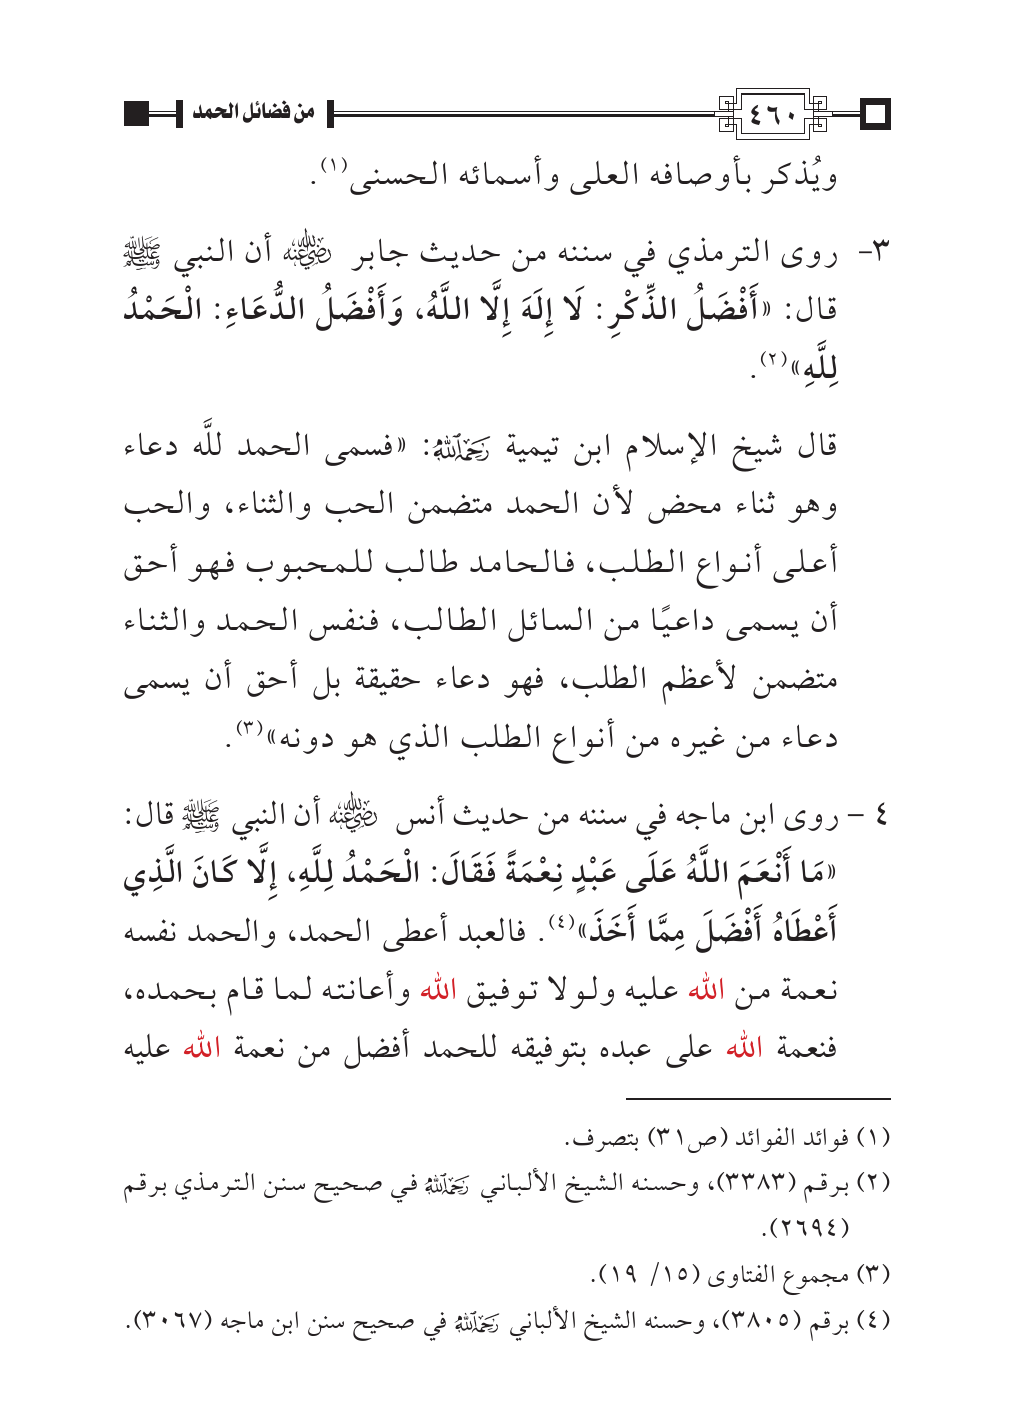 ٤٦٠ من فضائل الحمد
ويُذكر بأوصافه العلى وأسمائه الحسنى(١).
٣- روى الترمذي في سننه من حديث جابر ﵁ أن النبي ﷺ
قال: «أَفْضَلُ الذِّكْرِ: لَا إِلَهَ إِلَّا اللَّهُ، وَأَفْضَلُ الدُّعَاءِ: الْحَمْدُ
لِلَّهِ»(٢).
قال شيخ الإسلام ابن تيمية ﵀: «فسمى الحمد للَّه دعاء
وهو ثناء محض لأن الحمد متضمن الحب والثناء، والحب
أعلى أنواع الطلب، فالحامد طالب للمحبوب فهو أحق
أن يسمى داعيًا من السائل الطالب، فنفس الحمد والثناء
متضمن لأعظم الطلب، فهو دعاء حقيقة بل أحق أن يسمى
دعاء من غيره من أنواع الطلب الذي هو دونه»(٣).
٤ - روى ابن ماجه في سننه من حديث أنس ﵁ أن النبي ﷺ قال:
«مَا أَنْعَمَ اللَّهُ عَلَى عَبْدٍ نِعْمَةً فَقَالَ: الْحَمْدُ لِلَّهِ، إِلَّا كَانَ الَّذِي
أَعْطَاهُ أَفْضَلَ مِمَّا أَخَذَ»(٤). فالعبد أعطى الحمد، والحمد نفسه
نعمة من الله عليه ولولا توفيق الله وأعانته لما قام بحمده،
فنعمة الله على عبده بتوفيقه للحمد أفضل من نعمة الله عليه
(١) فوائد الفوائد (ص٣١) بتصرف.
(٢) برقم (٣٣٨٣)، وحسنه الشيخ الألباني ﵀ في صحيح سنن الترمذي برقم
(٢٦٩٤).
(٣) مجموع الفتاوى (١٥/ ١٩).
(٤) برقم (٣٨٠٥)، وحسنه الشيخ الألباني ﵀ في صحيح سنن ابن ماجه (٣٠٦٧).